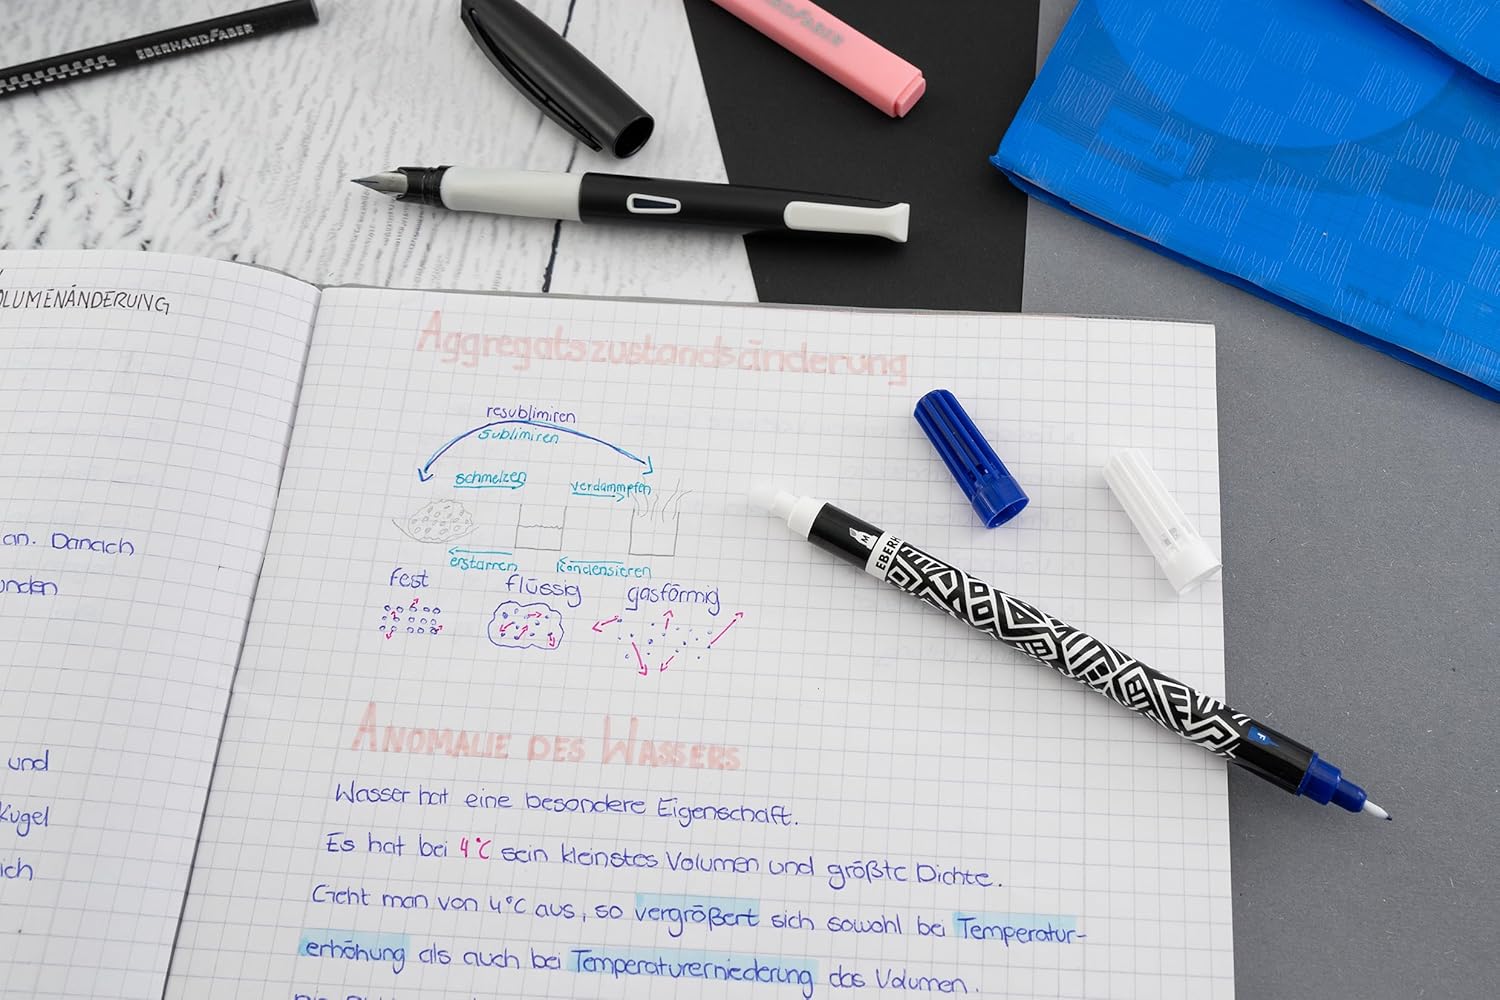 EBERHARDFABER
VOLUMENÄNDERUNG
an. Danach
und
Kugel
ich
Aggregatszustandsänderung
resublimiren
sublimiren
schmelzen
verdammpfen
erstarren
Kondensieren
fest
flüssig
gasförmig
ANOMALIE DES WASSERS
Wasser hat eine besondere Eigenschaft.
Es hat bei 4°C sein kleinstes Volumen und größte Dichte.
Geht man von 4°C aus, so vergrößert sich sowohl bei Temperatur-
erhöhung als auch bei Temperaturerniederung das Volumen.
M
EBERH
F